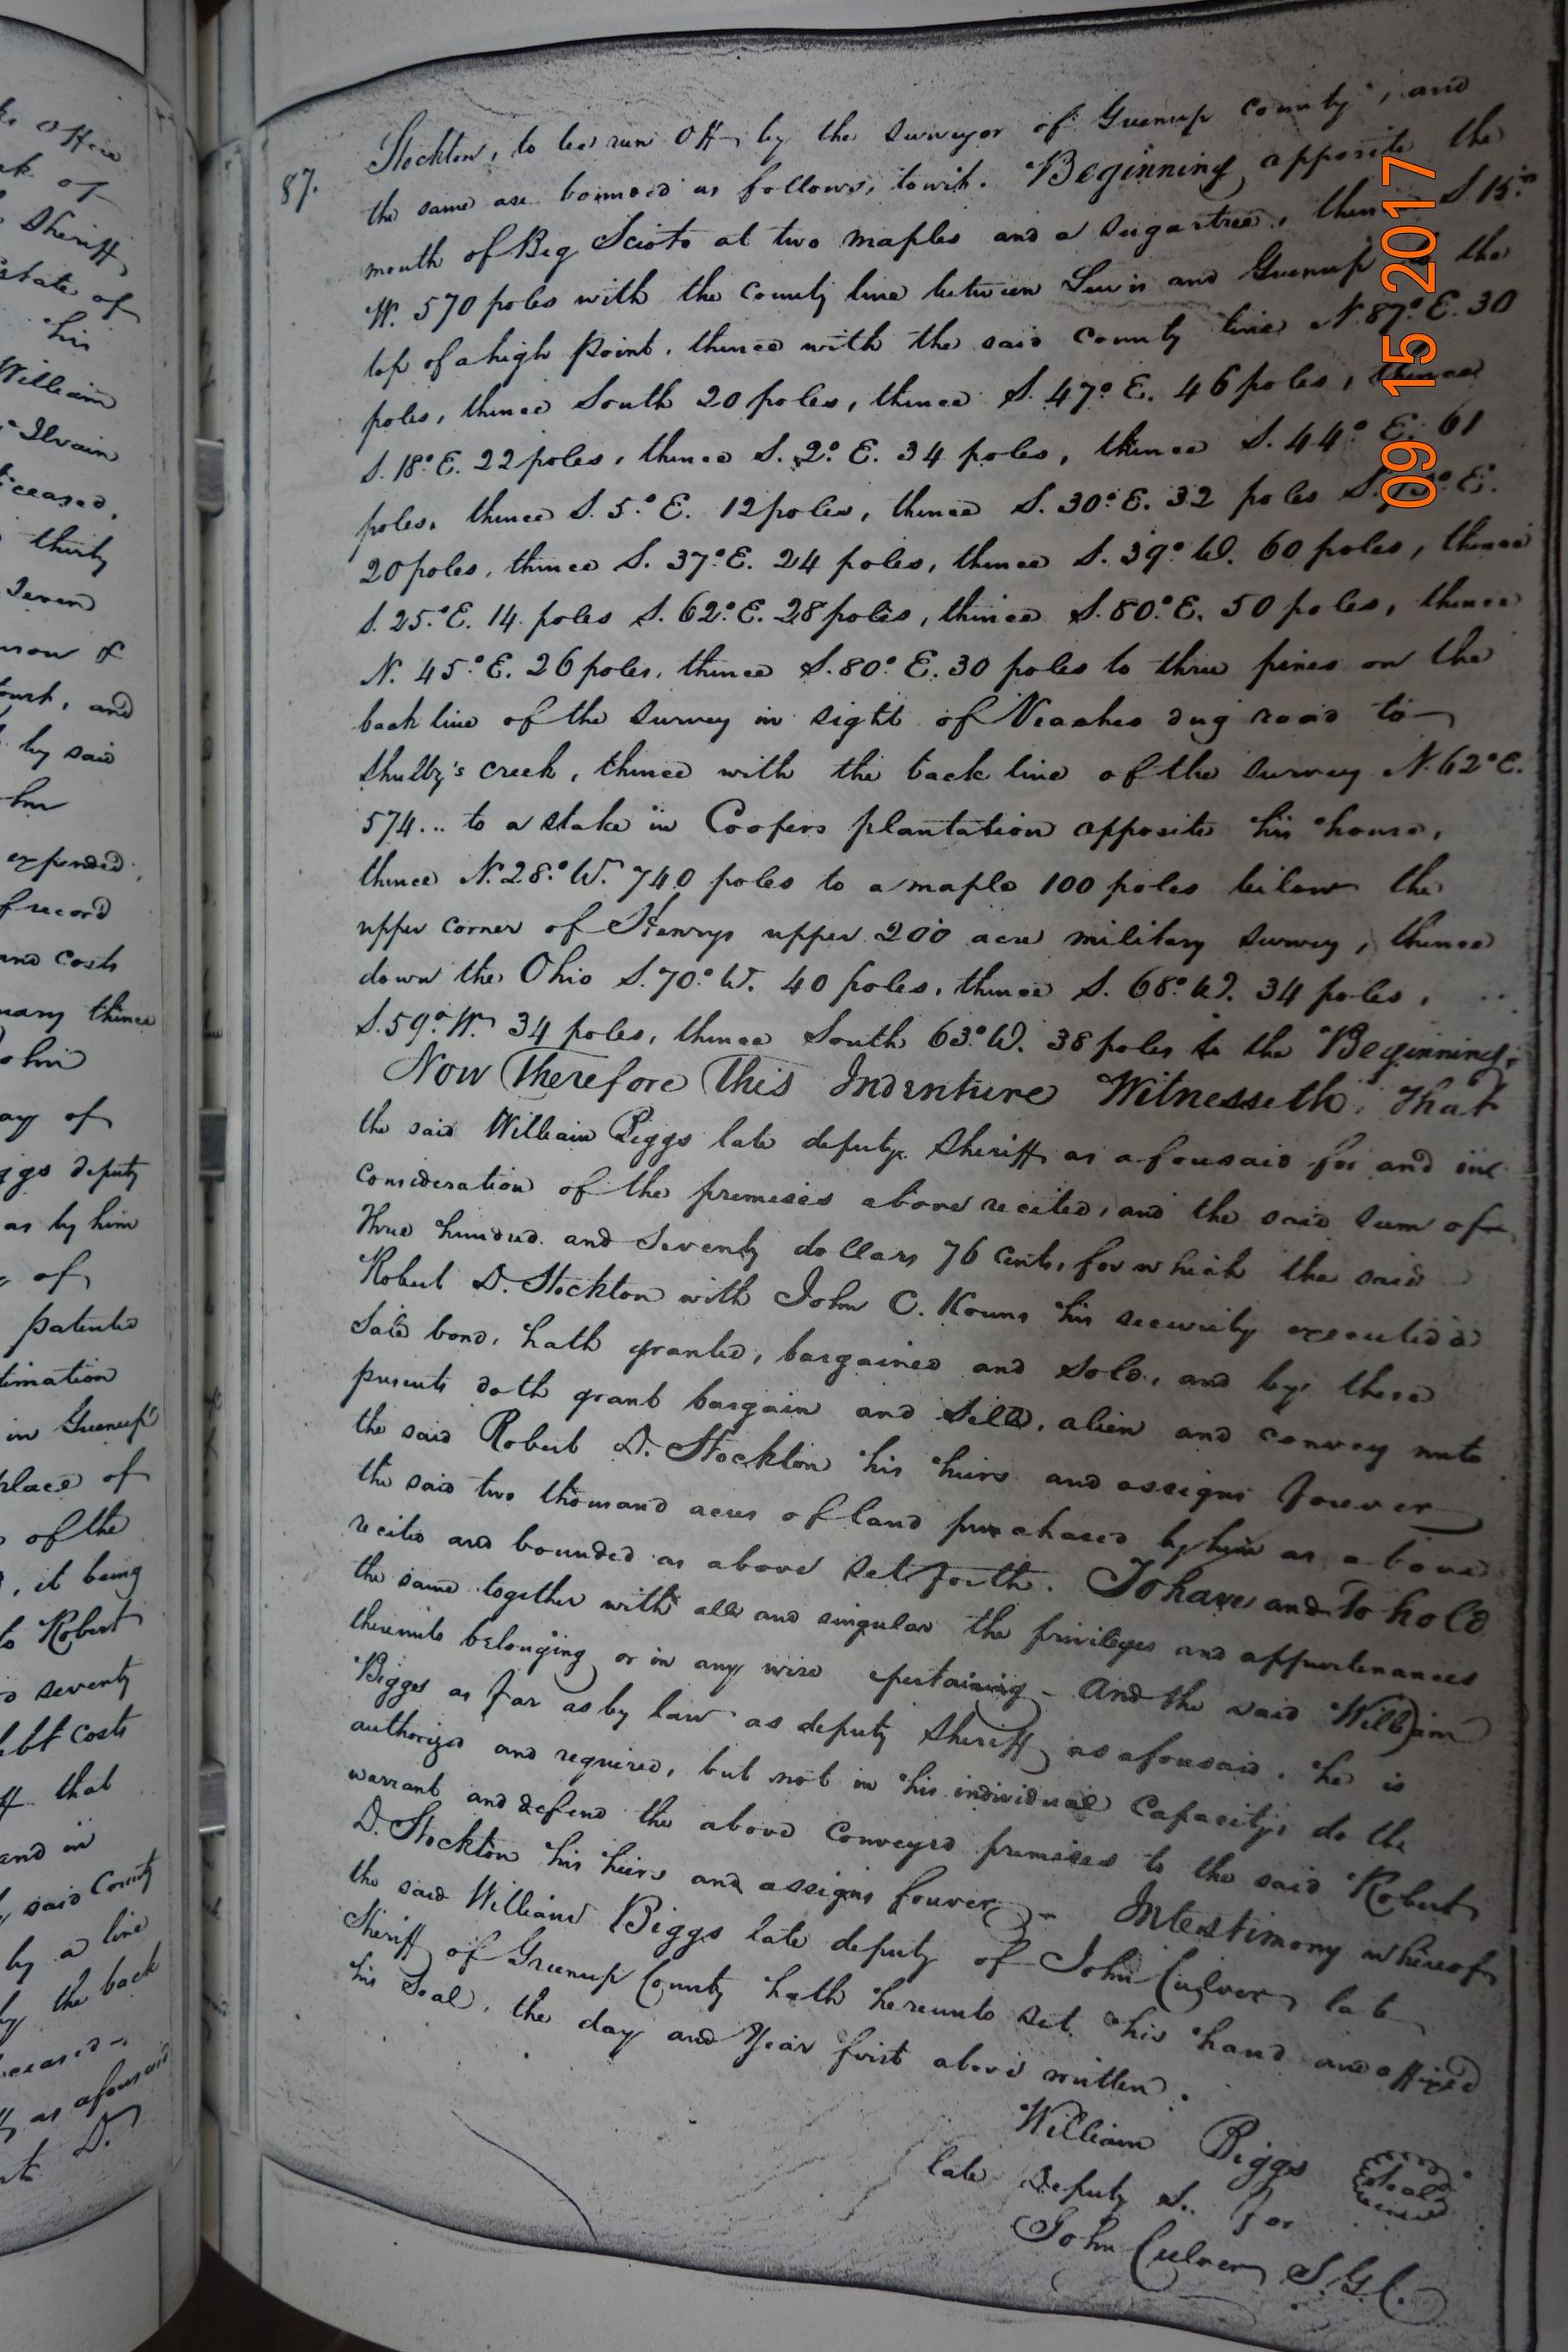 87.
Stockton, to be run Off by the surveyor of Greenup county, and
the same are bounded as follows, towit. Beginning opposite the
mouth of Big Scioto at two maples and a sugartree, thence S. 15°
W. 570 poles with the county line between Lewis and Greenup to the
top of a high point, thence with the said county line N. 87° E. 30
poles, thence South 20 poles, thence S. 47° E. 46 poles, thence
S. 18° E. 22 poles, thence S. 2° E. 34 poles, thence S. 44° E. 61
poles, thence S. 5° E. 12 poles, thence S. 30° E. 32 poles S. E.
20 poles, thence S. 37° E. 24 poles, thence S. 39° W. 60 poles, thence
S. 25° E. 14 poles S. 62° E. 28 poles, thence S. 80° E. 50 poles, thence
N. 45° E. 26 poles, thence S. 80° E. 30 poles to three pines on the
back line of the survey in sight of dug road to
Shulby's creek, thence with the back line of the survey N. 62° E.
574... to a stake in Coopers plantation opposite his house,
thence N. 28° W. 740 poles to a maple 100 poles below the
upper corner of Henrys upper 200 acre military survey, thence
down the Ohio S. 70° W. 40 poles, thence S. 68° W. 34 poles,
S. 59° W. 34 poles, thence South 63° W. 38 poles to the Beginning,
Now Therefore This Indenture Witnesseth, That
the said William Biggs late deputy Sheriff as aforesaid for and in
consideration of the premises above recited, and the said sum of
three hundred and seventy dollars 76 cents, for which the said
Robert D. Stockton with John C. Kouns his security executed a
Sale bond, hath granted, bargained and sold, and by these
presents doth grant bargain and Sell, alien and convey unto
the said Robert D. Stockton his heirs and assigns forever
the said two thousand acres of land purchased by him as above
recited and bounded as above set forth. To have and to hold
the same together with all and singular the privileges and appurtenances
thereunto belonging or in any wise apertaining - And the said William
Biggs as far as by law as deputy Sheriff as aforesaid, he is
authorized and required, but not in his individual Capacity, do the
warrant and defend the above conveyed premises to the said Robert
D. Stockton his heirs and assigns forever - In testimony whereof
the said William Biggs late deputy of John Culver late
Sheriff of Greenup County hath hereunto set his hand and affixed
his Seal, the day and Year first above written.
William Biggs Seal
late Deputy S. for
John Culver S.G.C.
09 15 2017
ke Office
of
Sheriff
state of
his
William
Ilvain
ceased,
thirty
Seven
of
ourt, and
by said
expended,
of record
and costs
thence
ohn
ay of
ggs deputy
as by him
of
patented
timation
in Greenup
place of
of the
, it being
to Robert
seventy
ebt costs
ff that
and in
said County
by a line
by the back
eceased
as aforesaid
D.